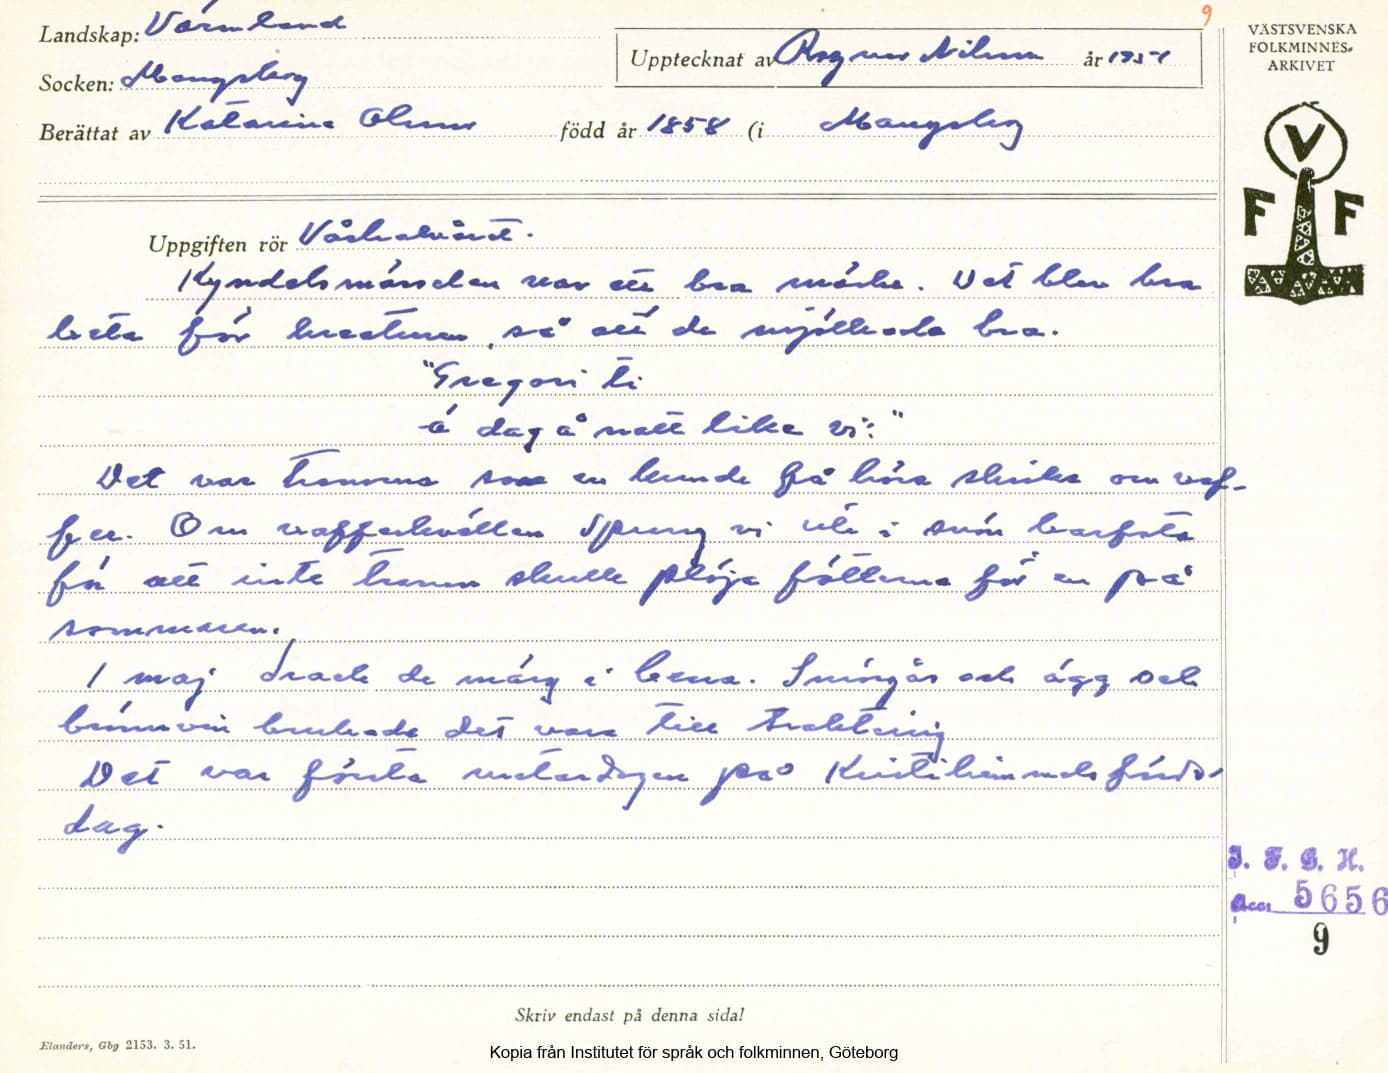 9
Landskap: Värmland
Upptecknat av Ragnar Nilsson år 1951
Socken: Mangskog
Berättat av Katarina Olsson född år 1858 (i Mangskog
VÄSTSVENSKA
FOLKMINNES-
ARKIVET
V
F F
Uppgiften rör Vårkalvård.
Kyndelsmässdan var ett bra märke. Det blev bra
bete för kreaturen, så att de mjölkade bra.
"Gregori ti
á dag å natt like vi:"
Det var tranorna som en kunde få höra skrika om vaf-
fer. Om vafferkvällen sprung vi ute i snön barfota
för att inte tranan skulle plöja fötterna för en på
sommaren.
I maj drack de märg i bena. Smörgås och ägg och
brännvin brukade det vara till traktering
Det var första metardagen på Kristihimmelsfärds-
dag.
I. F. G. H.
Acc. 5656
9
Skriv endast på denna sida!
Elanders, Gbg 2153. 3. 51.
Kopia från Institutet för språk och folkminnen, Göteborg